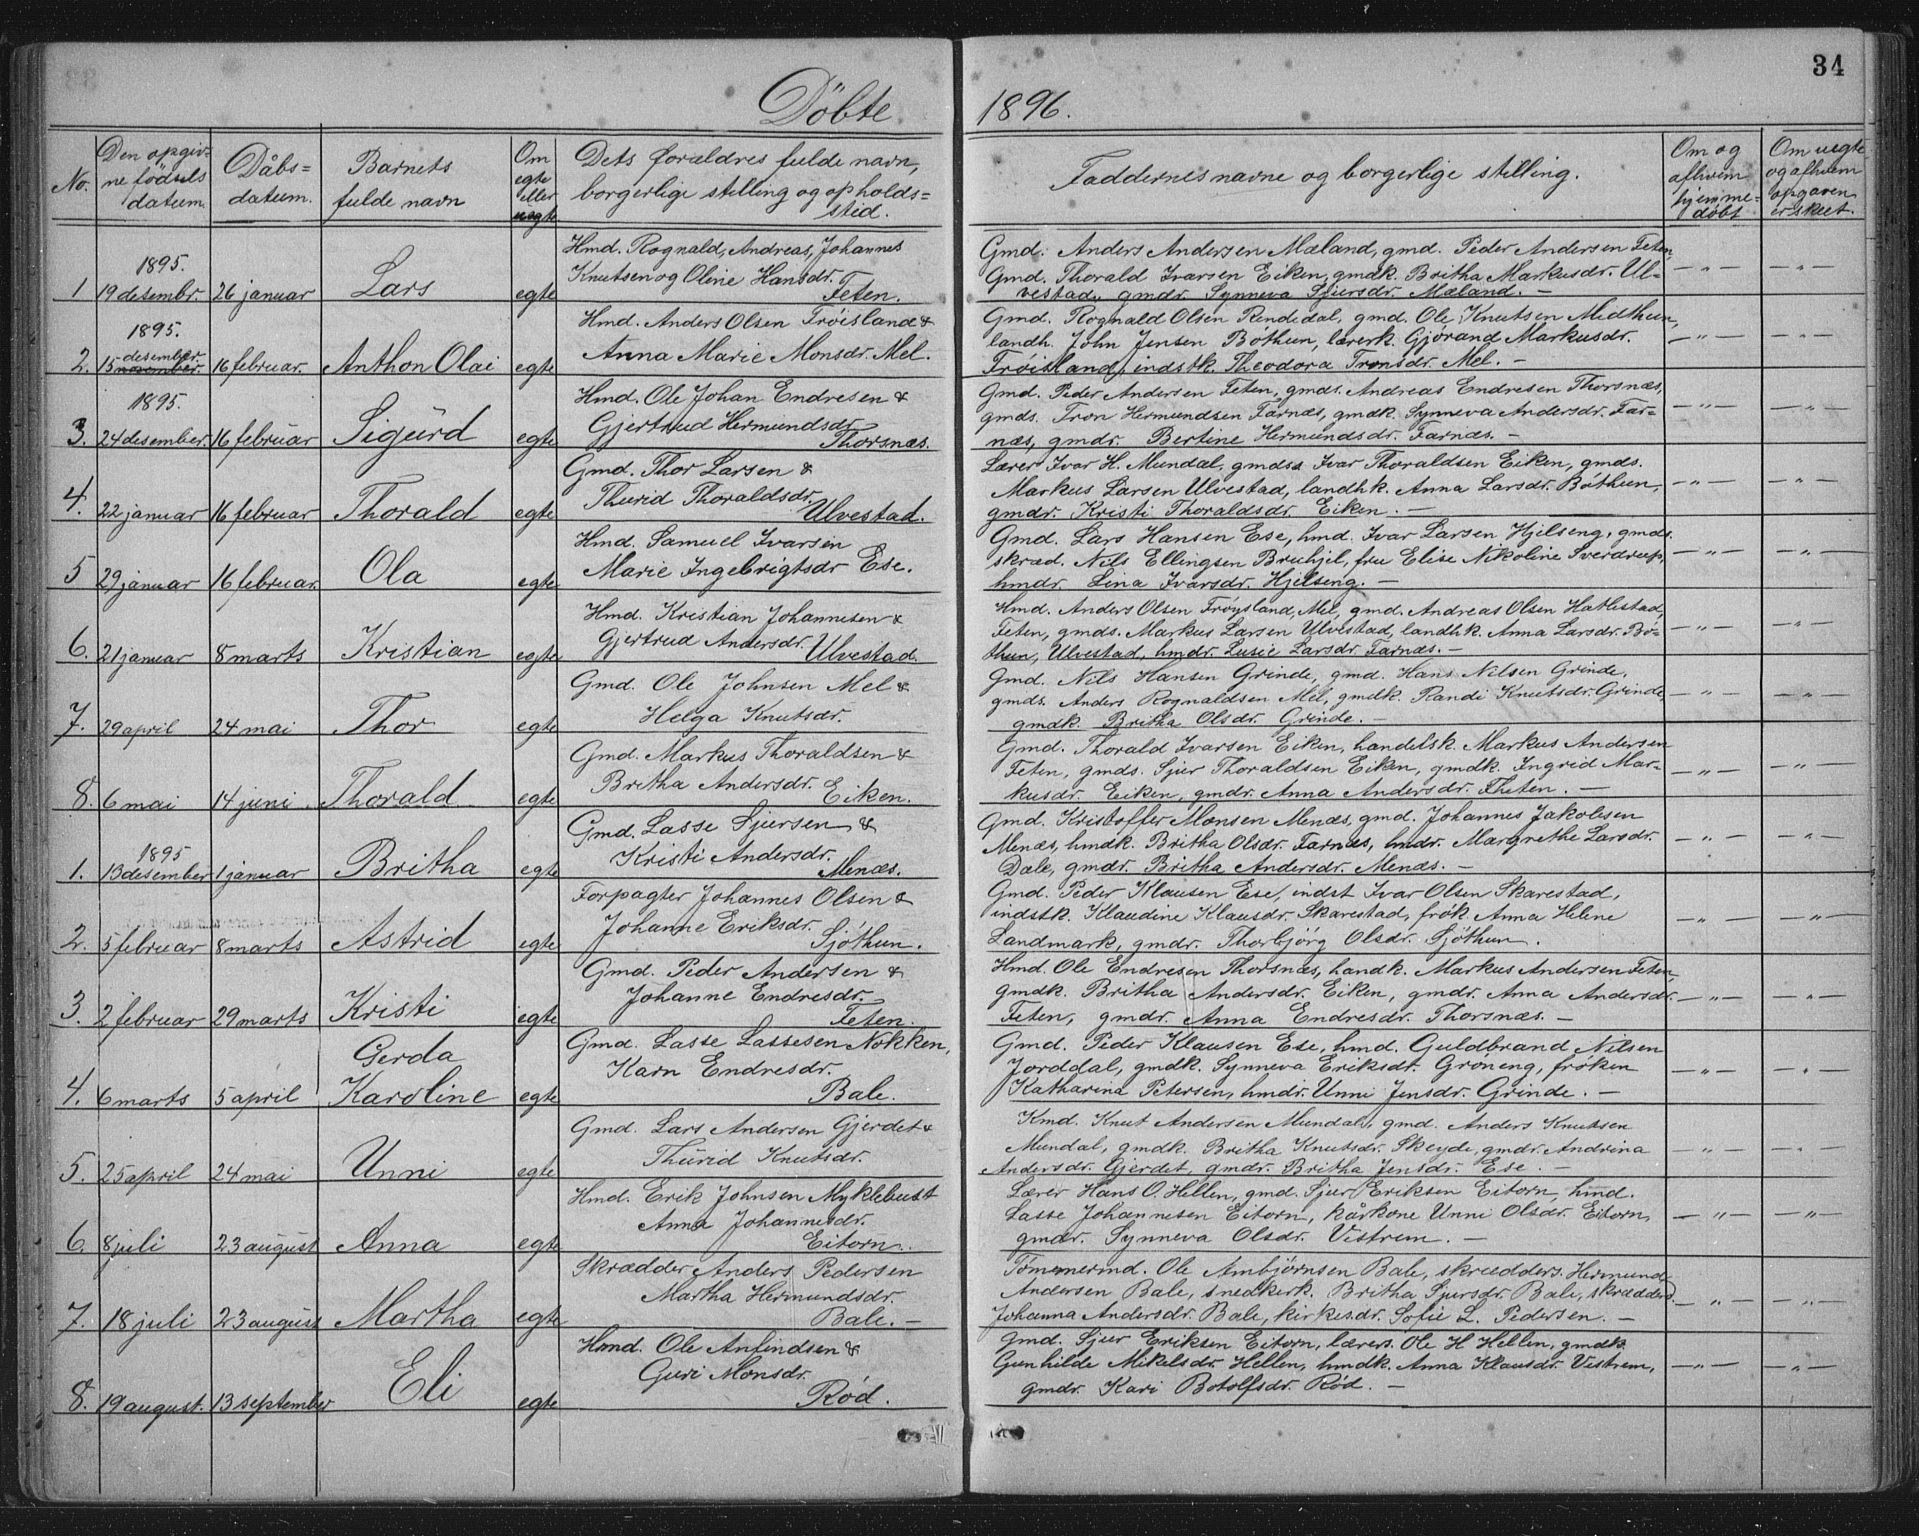 34
Döbte 1896.
No.
Den opgiv-
ne födsels
datum.
Dåbs-
datum.
Barnets
fulde navn
Om
egte
eller
uegte
Dets forældres fulde navn,
borgerlige stilling og opholds-
sted.
Faddernes navne og borgerlige stilling.
Om og
afhvem
hjemme-
döbt
Om uegte
og afhvem
opgaven
er skeet.
1 1895. 19 desembr. 26 januar Lars egte
Hmd. Rognald, Andreas, Johannes
Knutsen og Oline Hansdr.
Feten.
Gmd. Anders Andersen Mæland, gmd. Peder Andersen Feten,
Gmd. Thorald Ivarsen Eiken, gmdk. Britha Markusdr. Ul-
vestad, gmdr. Synneva Sjursdr. Mæland. —
— „ — — „ —
2. 1895. 15 desember november 16 februar. Anthon Olai egte
Hmd. Anders Olsen Tröisland &
Anna Marie Monsdr. Mel.
Gmd. Rognald Olsen Rendedal, gmd. Ole Knutsen Midthun,
landh. John Jensen Böthun, lærerk. Gjörand Markusdr.
Fröisland, indstk Theodora Tronsdr. Mel. —
— „ — — „ —
3. 1895. 24 desember. 16 februar Sigurd egte
Hmd. Ole Johan Endresen &
Gjertrud Hermundsdr.
Thorsnæs.
Gmd. Peder Andersen Feten, gmds. Andreas Endresen Thorsnæs,
gmds. Tron Hermundsen Farnæs, gmdk. Synneva Andersdr. Far-
næs, gmdr. Bertine Hermundsdr. Farnæs. —
— „ — — „ —
4. 22 januar 16 februar Thorald egte
Gmd. Thor Larsen &
Thurid Thoraldsdr.
Ulvestad.
Lærer Ivar H. Mundal, gmdss Ivar Thoraldsen Eiken, gmds.
Markus Larsen Ulvestad, landhk. Anna Larsdr. Böthun,
gmdr. Kristi Thoraldsdr. Eiken. —
— „ — — „ —
5 29 januar 16 februar. Ola egte
Hmd. Samuel Ivarsen
Marie Ingebrigtsdr Ese.
Gmd. Lars Hansen Ese, hmd. Ivar Larsen Hjelseng, gmds.
skræd. Nils Ellingsen Bruhjel, fru Elise Nikoline Sverdrup,
hmdr. Lina Ivarsdr. Hjelseng. —
— „ — — „ —
6. 21 januar 8 marts Kristian egte
Hmd. Kristian Johannesen &
Gjertrud Andersdr.
Ulvestad.
Hmd. Anders Olsen Fröysland, Mel, gmd. Andreas Olsen Hatlestad,
Feten, gmds. Markus Larsen Ulvestad, landhk. Anna Larsdr. Bö-
thun, Ulvestad, hmdr. Lusie Larsdr. Farnæs. —
— „ — — „ —
7. 29 april 24 mai Thor egte
Gmd. Ole Johnsen Mel &
Helga Knutsdr.
Gmd. Nils Hansen Grinde, gmd. Hans Nilsen Grinde,
gmds. Anders Rognaldsen Mel, gmdk. Randi Knutsdr. Grinde,
gmdk. Britha Olsdr. Grinde. —
— „ — — „ —
8. 6 mai 14 juni. Thorald egte
Gmd. Markus Thoraldsen &
Britha Andersdr.
Eiken.
Gmd. Thorald Ivarsen Eiken, handelsk. Markus Andersen
Feten, gmds. Sjur Thoraldsen Eiken, gmdk. Ingrid Mar-
kusdr. Eiken, gmdr. Anna Andersdr. Theten. —
— „ — — „ —
1. 1895 13 desember 1 januar Britha egte
Gmd. Lasse Sjursen &
Kristi Andersdr.
Menæs.
Gmd. Kristoffer Monsen Menæs, gmd. Johannes Jakobsen
Menæs, hmdk. Britha Olsdr. Farnæs, hmdr. Margrethe Larsdr.
Dale, gmdr. Britha Andersdr. Menæs. —
— „ — — „ —
2. 5 februar 8 marts Astrid egte
Forpagter Johannes Olsen &
Johanne Eriksdr.
Sjöthun.
Gmd. Peder Klausen Ese, indst Ivar Olsen Skarestad,
indstk. Klaudine Klausdr. Skarestad, frök. Anna Helene
Landmark, gmdr. Thorbjörg Olsdr. Sjöthun.
— „ — — „ —
3. 2 februar 29 marts Kristi egte
Gmd. Peder Andersen &
Johanne Endresdr.
Feten.
Hmd. Ole Endresen Thorsnæs, handk. Markus Andersen Feten,
gmdk. Britha Andersdr. Eiken, gmdr. Anna Andersdr.
Feten, gmdr. Anna Endresdr. Thorsnæs. —
— „ — — „ —
4. 6 marts 5 april Gerda
Karoline egte
Gmd. Lasse Lassesen Nokken,
Karn Endresdr.
Bale.
Gmd. Peder Klausen Ese, hmd. Guldbrand Nilsen
Jorddal, gmdk. Synneva Eriksdr. Gröneng, fröken
Katharina Petersen, hmdr. Unni Jensdr. Grinde. —
— „ — — „ —
5. 25 april 24 mai Unni egte
Gmd. Lars Andersen Gjerdet &
Thurid Knutsdr.
Kmd. Knut Andersen Mundal, gmd. Anders Knutsen
Mundal, gmdk. Britha Knutsdr. Skeyde, gmdr. Andrina
Andersdr. Gjerdet, gmdr. Britha Jensdr. Ese. —
— „ — — „ —
6. 8 juli 23 august Anna egte
Hmd. Erik Johnsen Myklebust
Anna Johannesdr.
Eitorn.
Lærer Hans O. Hellen, gmd. Sjur Eriksen Eitorn, hmd.
Lasse Johannesen Eitorn, kårkone Unni Olsdr. Eitorn,
gmdr. Synneva Olsdr. Vistrem. —
— „ — — „ —
7. 18 juli 23 august Martha egte
Skrædder Anders Pedersen
Martha Hermundsdr.
Bale. —
Tömmermd. Ole Ambjörnsen Bale, skrædders. Hermund
Andersen Bale, snedkerk. Britha Sjursdr. Bale, skrædderd.
Johanna Andersdr. Bale, kirkesdr. Sofie L. Pedersen. —
— „ — — „ —
8. 19 august. 13 september Eli egte
Hmd. Ole Anfindsen &
Guri Monsdr.
Röd.
Gmd. Sjur Eriksen Eitorn, lærers. Ole H Hellen, gmdk.
Gunhilde Mikelsdr. Hellen, hmdk. Anna Klausdr. Vistrem,
gmdr. Kari Botolfsdr. Röd. —
— „ — — „ —